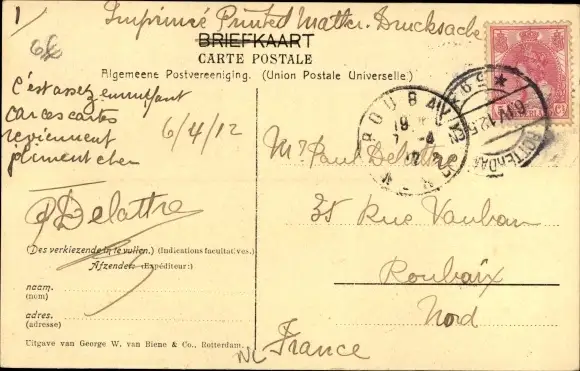 1/
Imprimé Printed Matter. Drucksache
BRIEFKAART
CARTE POSTALE
Algemeene Postvereeniging. (Union Postale Universelle)
c'est assez ennuyant
car ces cartes
reviennent
cher
6/4/12
Delattre
(Des verkiezende in te vullen.) (Indications facultatives.)
Afzender: (Expéditeur:)
naam.
(nom)
adres.
(adresse)
Uitgave van George W. van Biene & Co., Rotterdam.
NL
ROUBAIX
ROTTERDAM
Mr Paul Delattre
35 Rue Vauban
Roubaix
Nord
France